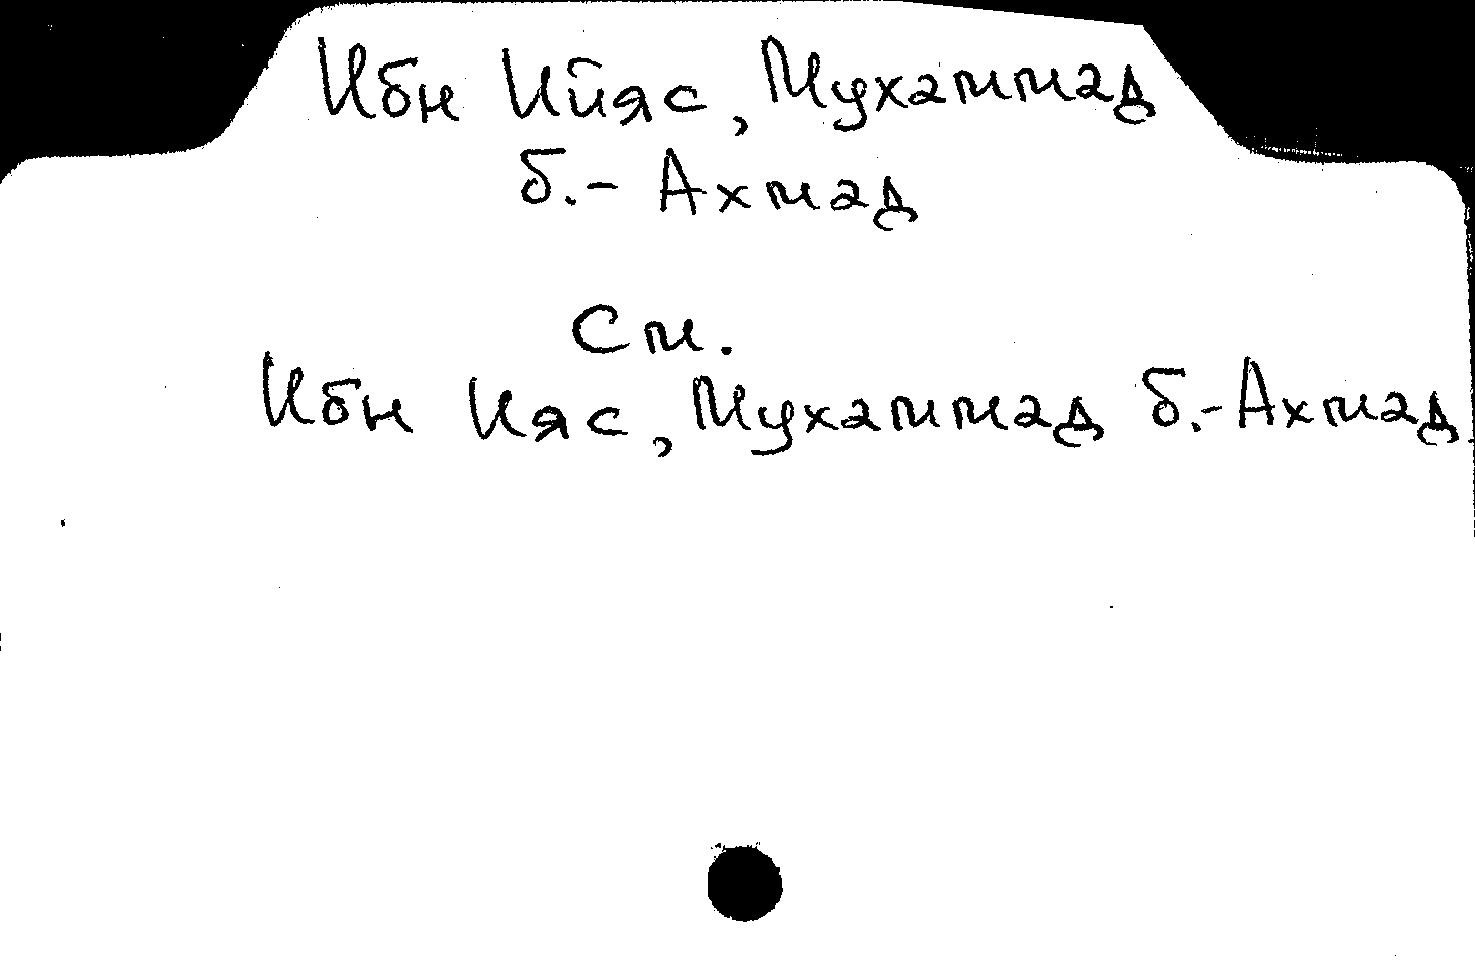 Ибн Ийяс, Мухаммад
б.- Ахмад
См.
Ибн Ияс, Мухаммад б.- Ахмад.